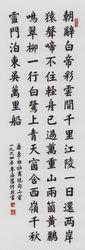 朝辭白帝彩雲間千里江陵一日還兩岸
猿聲啼不住輕舟已過萬重山兩箇黃鸝
鳴翠柳一行白鷺上青天窗含西嶺千秋
雪門泊東吳萬里船
唐李白杜甫絕句二首